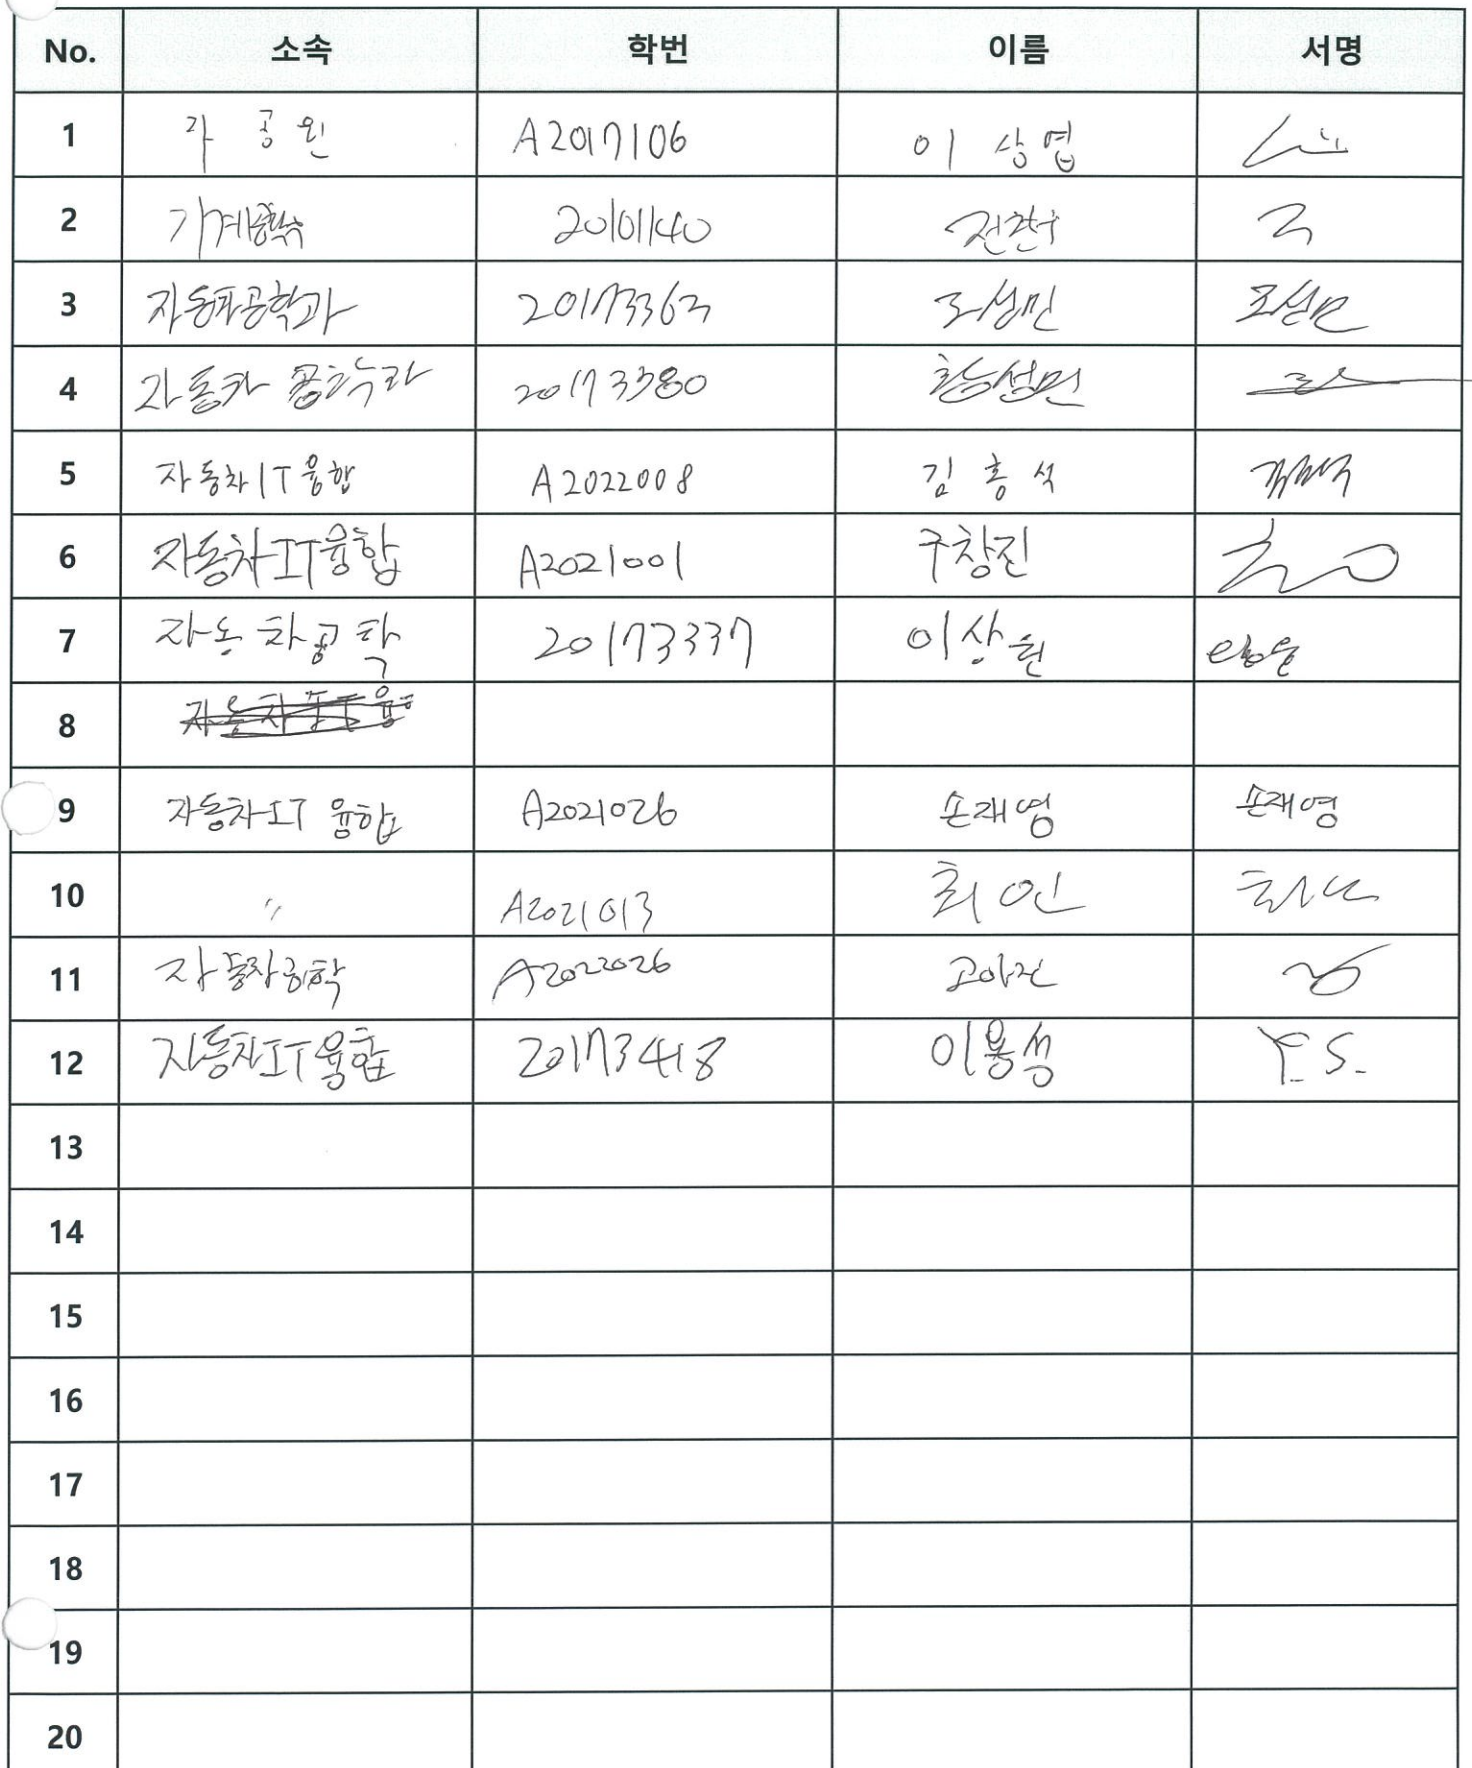 No. 소속 학번 이름 서명
1 자 공 원 A2017106 이 상 엽
2 기계공학 20101140
3 자동차공학과 20173363 조성민 조성민
4 자동차 공학과 20173380 황성민
5 자동차IT융합 A2022008 김 홍 석
6 자동차IT융합 A2021001 구창진
7 자동차공학 20173337 이상현
8
9 자동차IT 융합 A2021026 손재영 손재영
10 〃 A2021013 최인
11 자동차공학 A2022026
12 자동차IT융합 20173418 이용성 Y. S.
13
14
15
16
17
18
19
20